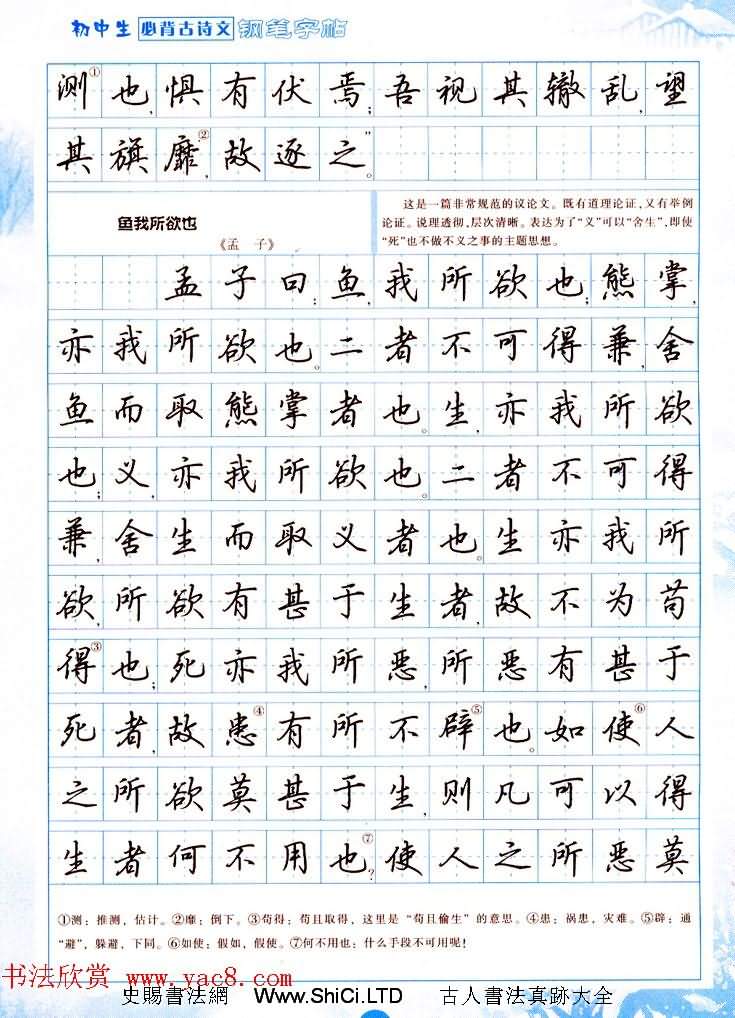 初中生 必背古诗文 钢笔字帖
测①也,惧有伏焉;吾视其辙乱,望
其旗靡②,故逐之。”
鱼我所欲也
《孟 子》
这是一篇非常规范的议论文。既有道理论证,又有举例
论证。说理透彻,层次清晰。表达为了“义”可以“舍生”,即使
“死”也不做不义之事的主题思想。
孟子曰:鱼,我所欲也;熊掌,
亦我所欲也。二者不可得兼,舍
鱼而取熊掌者也。生,亦我所欲
也;义,亦我所欲也。二者不可得
兼,舍生而取义者也。生亦我所
欲,所欲有甚于生者,故不为苟
得③也;死亦我所恶,所恶有甚于
死者,故患④有所不辟⑤也。如使⑥人
之所欲莫甚于生,则凡可以得
生者何不用也⑦?使人之所恶莫
①测:推测,估计。②靡:倒下。③苟得:苟且取得,这里是“苟且偷生”的意思。④患:祸患,灾难。⑤辟:通
“避”,躲避,下同。⑥如使:假如,假使。⑦何不用也:什么手段不可用呢!
书法欣赏 www.yac8.com
史賜書法網 Www.ShiCi.LTD 古人書法真跡大全